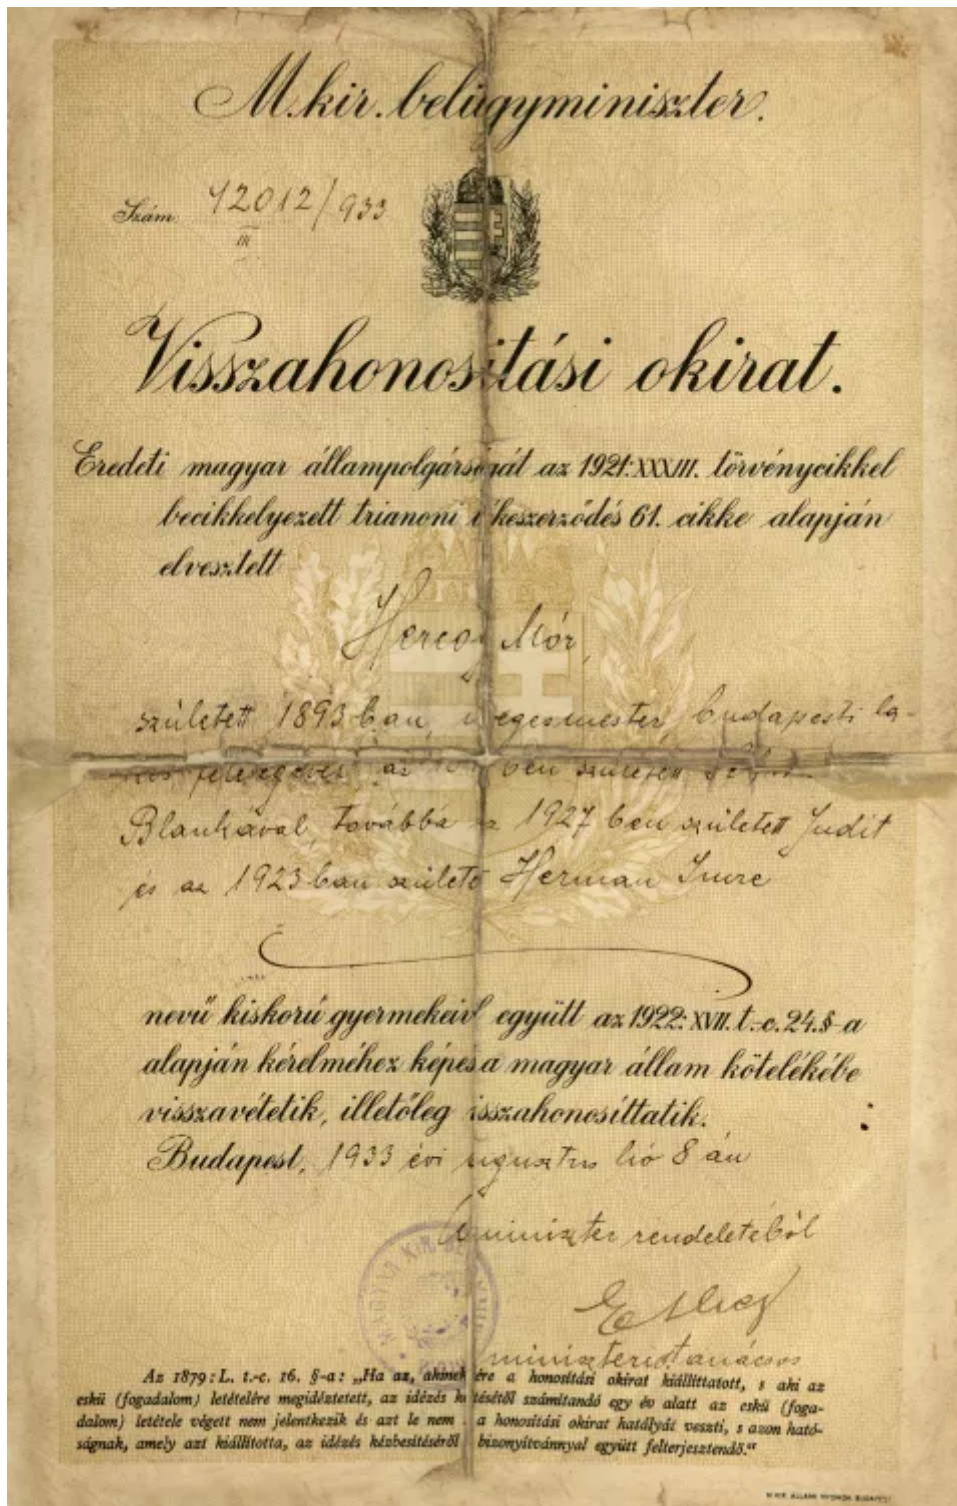 M. kir. belügyminiszter.
Szám 42012/933
III
Visszahonosítási okirat.
Eredeti magyar állampolgárságát az 1921: XXXIII. törvénycikkel
becikkelyezett trianoni békeszerződés 61. cikke alapján
elvesztett
Mór,
született 1893 ban, budapesti la-
az ben született
Blankával, továbbá az 1927 ben született Judit
és az 1923 ban született Herman Imre
nevű kiskorú gyermekeivel együtt az 1922: XVII. t.-c. 24. §-a
alapján kérelméhez képest a magyar állam kötelékébe
visszavétetik, illetőleg visszahonosíttatik.
Budapest, 1933 évi augusztus hó 8 án
A miniszter rendeletéből
miniszteri tanácsos
MAGYAR KIR.
Az 1879: L. t.-c. 16. §-a: „Ha az, akinek részére a honosítási okirat kiállíttatott, s aki az
eskü (fogadalom) letételére megidéztetett, az idézés kézbesítésétől számítandó egy év alatt az eskü (foga-
dalom) letétele végett nem jelentkezik és azt le nem a honosítási okirat hatályát veszti, s azon ható-
ságnak, amely azt kiállította, az idézés kézbesítéséről bizonyítvánnyal együtt felterjesztendő."
M. KIR. ÁLLAMI NYOMDA. BUDAPEST